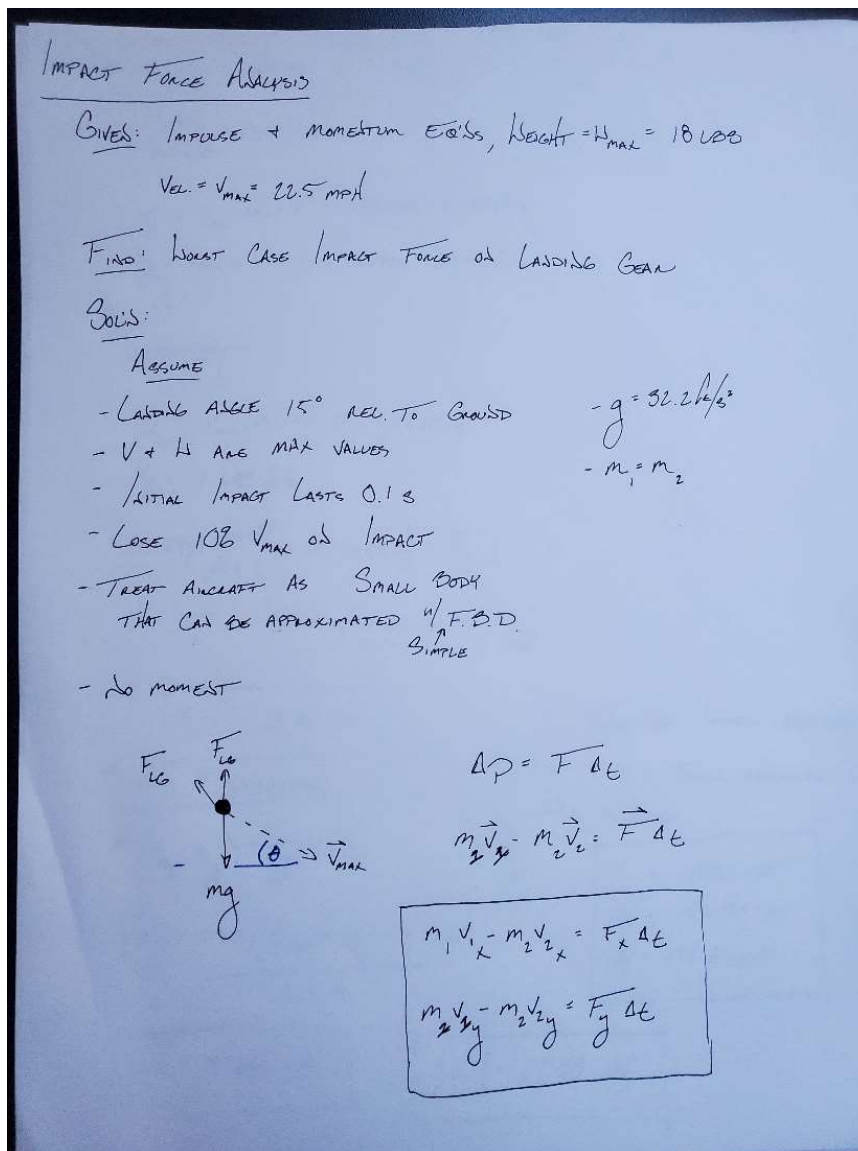 IMPACT FORCE ANALYSIS
GIVEN: IMPULSE + MOMENTUM EQ'NS, WEIGHT = W_MAX = 18 LBS
VEL. = V_MAX = 22.5 MPH
FIND: WORST CASE IMPACT FORCE ON LANDING GEAR
SOL'N:
ASSUME
- LANDING ANGLE 15° REL. TO GROUND
- V + W ARE MAX VALUES
- INITIAL IMPACT LASTS 0.1 s
- LOSE 10% V_MAX ON IMPACT
- TREAT AIRCRAFT AS SMALL BODY
THAT CAN BE APPROXIMATED w/ F.B.D.
SIMPLE
- NO MOMENT
- g = 32.2 ft/s²
- m₁ = m₂
F_LG F_LG
θ V_MAX
mg
Δp = F Δt
m₂V₂ - m₂V₂ = F Δt
m₁V₁x - m₂V₂x = Fx Δt
m₂V₂y - m₂V₂y = Fy Δt